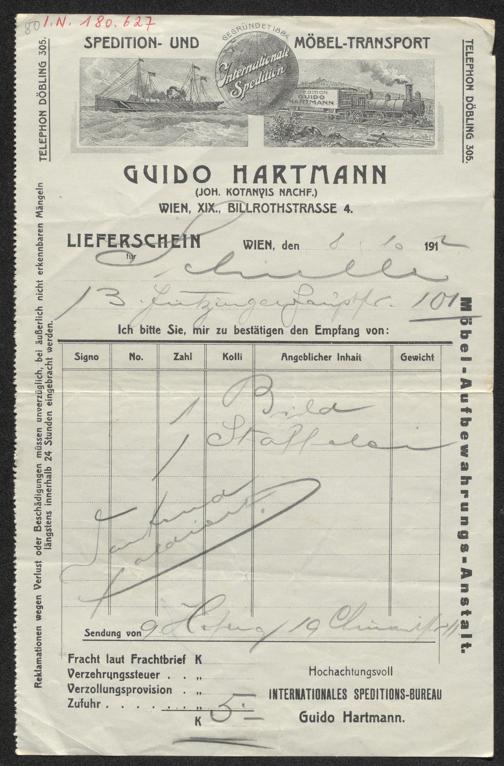 80
I.N. 180.627
SPEDITION- UND MÖBEL-TRANSPORT
GEGRÜNDET 1884
Internationale
Spedition
SPEDITION
GUIDO
HARTMANN
TELEPHON DÖBLING 305.
TELEPHON DÖBLING 305.
GUIDO HARTMANN
(JOH. KOTANYIS NACHF.)
WIEN, XIX., BILLROTHSTRASSE 4.
LIEFERSCHEIN WIEN, den 8. 10 1912
für Schiele
13. Hietzinger Hauptstr. 101
Ich bitte Sie, mir zu bestätigen den Empfang von:
Signo No. Zahl Kolli Angeblicher Inhalt Gewicht
1 Bild
1 Staffelei
Sendung von
Fracht laut Frachtbrief K
Verzehrungssteuer . . „
Verzollungsprovision . „
Zufuhr . . . . . . . „
K 5.–
Hochachtungsvoll
INTERNATIONALES SPEDITIONS-BUREAU
Guido Hartmann.
Reklamationen wegen Verlust oder Beschädigungen müssen unverzüglich, bei äußerlich nicht erkennbaren Mängeln
längstens innerhalb 24 Stunden eingebracht werden.
Möbel-Aufbewahrungs-Anstalt.